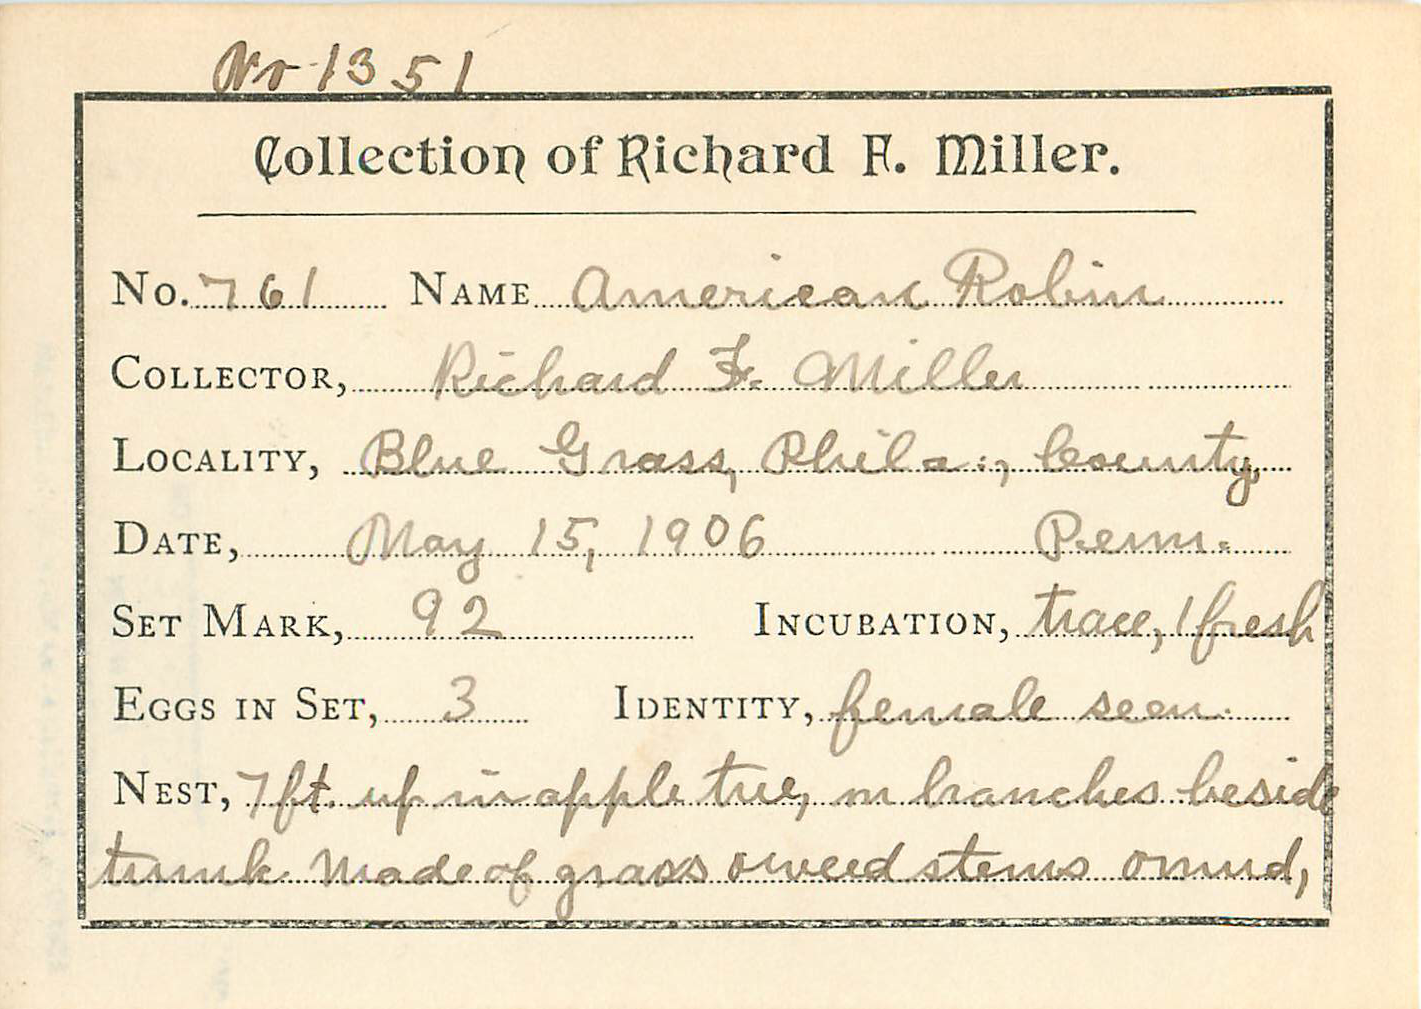 No 1351
Collection of Richard F. Miller.
No. 761 NAME American Robin
COLLECTOR, Richard F. Miller
LOCALITY, Blue Grass, Phila., County,
DATE, May 15, 1906 Penn.
SET MARK, 92 INCUBATION, trace, 1 fresh
EGGS IN SET, 3 IDENTITY, female seen.
NEST, 7 ft. up in apple tree, on branches beside
trunk. Made of grass weed stems mud,